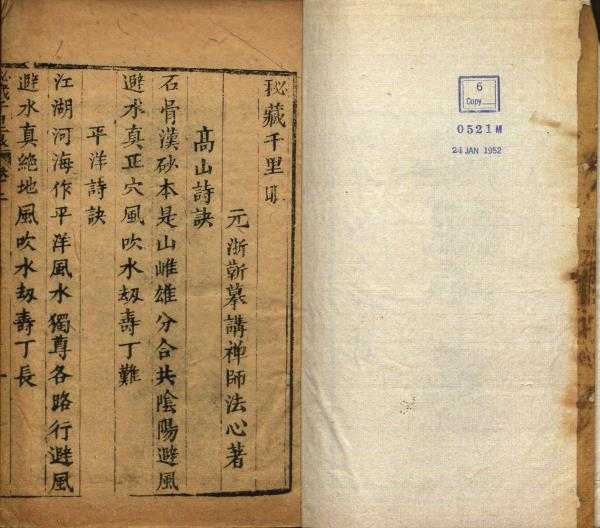 6
Copy
0521M
24 JAN 1952
秘藏千里
元浙靳墓講禅師法心著
高山詩訣
石骨漢砂本是山雌雄分合共陰陽避風
避水真正穴風吹水刼壽丁難
平洋詩訣
江湖河海作平洋風水獨尊各路行避風
避水真絶地風吹水刼壽丁長